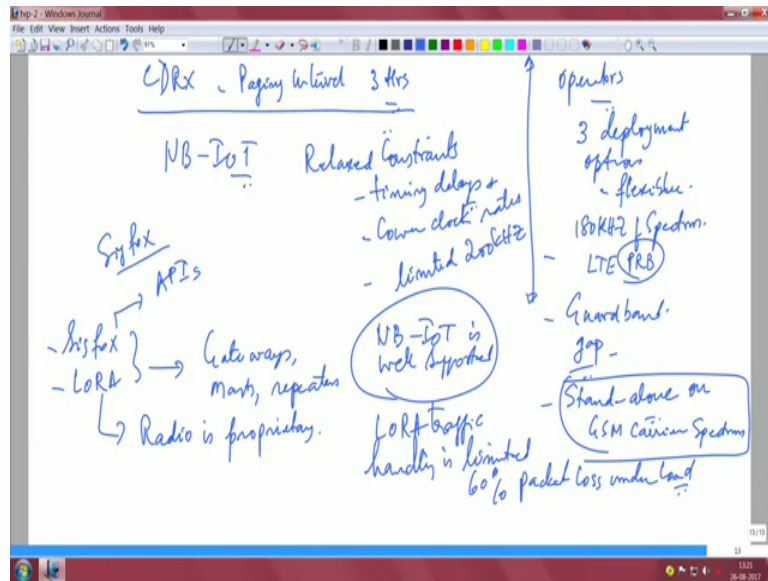 hvp-2 - Windows Journal
File Edit View Insert Actions Tools Help
91%
CDRX - Paging Interval 3 Hrs
NB-IoT Relaxed Constraints
- timing delays &
- Lower clock rates
- limited 200KHZ
Sigfox
APIs
- Sigfox
- LORA
Gateways,
Mast, repeaters
Radio is proprietary.
NB-IoT is
well supported
LORA traffic
handling is limited
60% packet loss under load
operators
3 deployment
options
- flexible.
180KHZ of Spectrum.
- LTE PRB
- Guardband.
gap -
- Stand-alone on
GSM Carrier Spectrum
13/13
13
13:21
26-08-2017